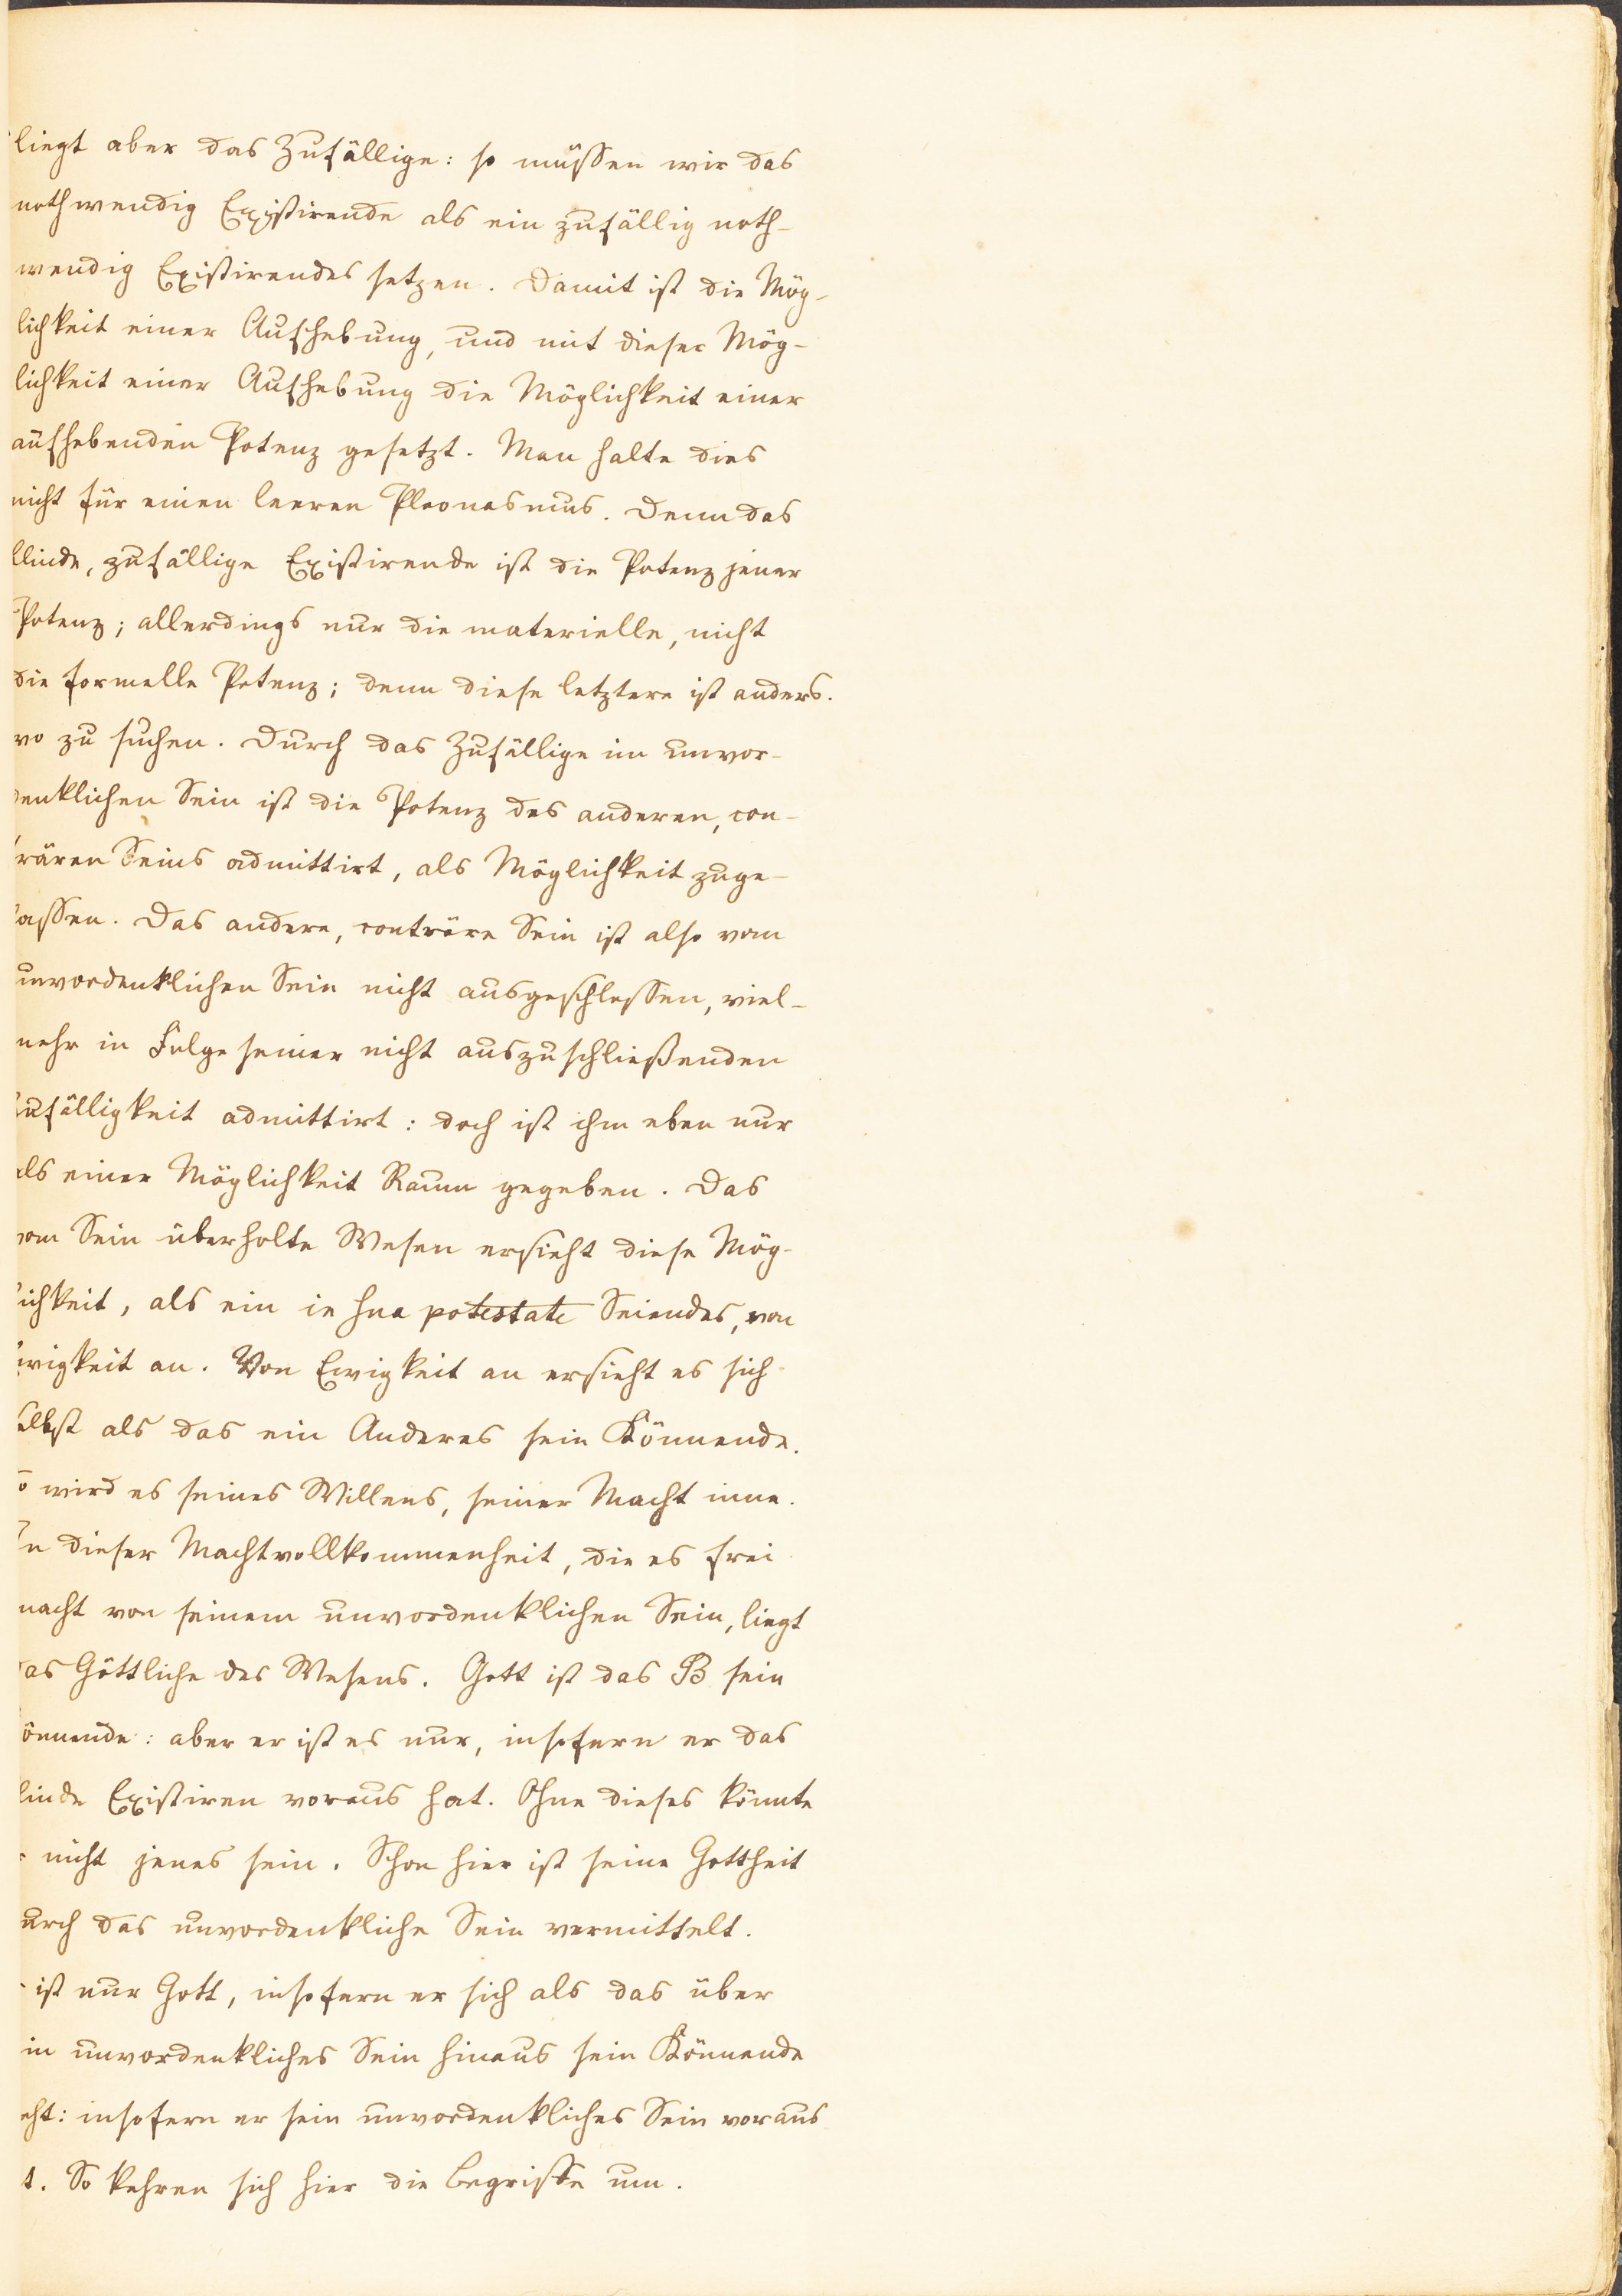 liegt aber das Zufällige: so müssen wir das
nothwendig Existirende als ein zufällig noth-
wendig Existirendes setzen. Damit ist die Mög-
lichkeit einer Aufhebung, und mit dieser Mög-
lichkeit einer Aufhebung die Möglichkeit einer
aufhebenden Potenz gesetzt. Man halte dies
nicht für einen leeren Pleonasmus. Denn das
blinde, zufällige Existirende ist die Potenz jener
Potenz; allerdings nur die materielle, nicht
die formelle Potenz; denn diese letztere ist anders-
wo zu suchen. Durch das Zufällige im unvor-
denklichen Sein ist die Potenz des anderen, con-
rären Seins admittirt, als Möglichkeit zuge-
lassen. Das andere, conträre Sein ist also vom
unvordenklichen Sein nicht ausgeschlossen, viel-
mehr in Folge seiner nicht auszuschließenden
ufälligkeit admittirt: doch ist ihm eben nur
als einer Möglichkeit Raum gegeben. Das
vom Sein überholte Wesen ersieht diese Mög-
lichkeit, als ein in sua potestate Seiendes, von
wigkeit an. Von Ewigkeit an ersieht es sich
selbst als das ein Anderes sein Könnende.
o wird es seines Willens, seiner Macht inne.
In dieser Machtvollkommenheit, die es frei
macht von seinem unvordenklichen Sein, liegt
das Göttliche des Wesens. Gott ist das B sein
önnende: aber er ist es nur, insofern er das
linde Existiren voraus hat. Ohne dieses könnte
r nicht jenes sein. Schon hier ist seine Gottheit
urch das unvordenkliche Sein vermittelt.
r ist nur Gott, insofern er sich als das über
in unvordenkliches Sein hinaus sein Könnende
eht: insofern er sein unvordenkliches Sein voraus
t. So kehren sich hier die Begriffe um.